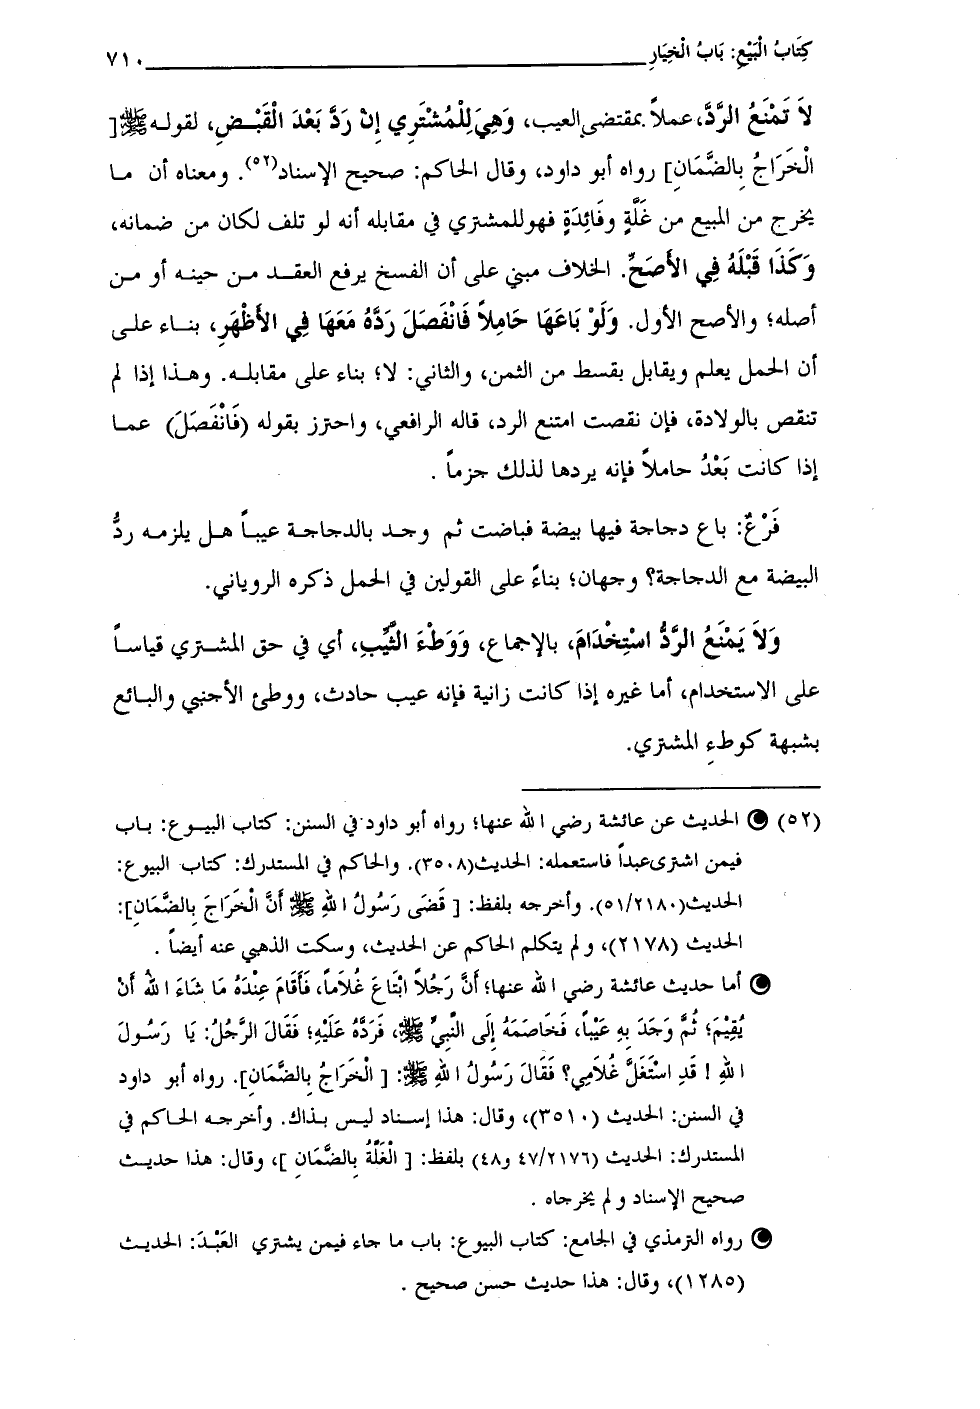 كِتَابُ الْبَيْعِ: بَابُ الْخِيَارِ ٧١٠
لاَ تَمْنَعُ الرَّدَّ، عملاً بمقتضى العيب، وَهِيَ لِلْمُشْتَرِي إِنْ رَدَّ بَعْدَ الْقَبْضِ، لقوله ﷺ [
الْخَرَاجُ بِالضَّمَانِ] رواه أبو داود، وقال الحاكم: صحيح الإسناد(٥٢). ومعناه أن ما
يخرج من المبيع من غَلَّةٍ وفَائِدَةٍ فهو للمشتري في مقابله أنه لو تلف لكان من ضمانه،
وَكَذَا قَبْلَهُ فِي الأَصَحِّ. الخلاف مبني على أن الفسخ يرفع العقد من حينه أو من
أصله؛ والأصح الأول. وَلَوْ بَاعَهَا حَامِلاً فَانْفَصَلَ رَدَّهُ مَعَهَا فِي الأَظْهَرِ، بناء على
أن الحمل يعلم ويقابل بقسط من الثمن، والثاني: لا؛ بناء على مقابله. وهذا إذا لم
تنقص بالولادة، فإن نقصت امتنع الرد، قاله الرافعي، واحترز بقوله (فَانْفَصَلَ) عما
إذا كانت بَعْدُ حاملاً فإنه يردها لذلك جزماً .
فَرْعٌ: باع دجاجة فيها بيضة فباضت ثم وجد بالدجاجة عيباً هل يلزمه ردُّ
البيضة مع الدجاجة؟ وجهان؛ بناءً على القولين في الحمل ذكره الروياني.
وَلاَ يَمْنَعُ الرَّدُّ اسْتِخْدَامَ، بالإجماع، وَوَطْءَ الثَّيِّبِ، أي في حق المشتري قياساً
على الاستخدام، أما غيره إذا كانت زانية فإنه عيب حادث، ووطئ الأجنبي والبائع
بشبهة كوطءِ المشتري.
(٥٢) الحديث عن عائشة رضي الله عنها؛ رواه أبو داود في السنن: كتاب البيوع: باب
فيمن اشترى عبداً فاستعمله: الحديث(٣٥٠٨). والحاكم في المستدرك: كتاب البيوع:
الحديث(٥١/٢١٨٠). وأخرجه بلفظ: [ قَضَى رَسُولُ اللهِ ﷺ أَنَّ الْخَرَاجَ بِالضَّمَانِ]:
الحديث (٢١٧٨)، ولم يتكلم الحاكم عن الحديث، وسكت الذهبي عنه أيضاً .
أما حديث عائشة رضي الله عنها؛ أَنَّ رَجُلاً ابْتَاعَ غُلاَماً، فَأَقَامَ عِنْدَهُ مَا شَاءَ اللهُ أَنْ
يُقِيْمَ؛ ثُمَّ وَجَدَ بِهِ عَيْباً، فَخَاصَمَهُ إِلَى النَّبِيِّ ﷺ، فَرَدَّهُ عَلَيْهِ؛ فَقَالَ الرَّجُلُ: يَا رَسُولَ
اللهِ ! قَدِ اسْتَغَلَّ غُلاَمِي؟ فَقَالَ رَسُولُ اللهِ ﷺ: [ الْخَرَاجُ بِالضَّمَانِ]. رواه أبو داود
في السنن: الحديث (٣٥١٠)، وقال: هذا إسناد ليس بذاك. وأخرجه الحاكم في
المستدرك: الحديث (٤٧/٢١٧٦ و٤٨) بلفظ: [ الْغَلَّةُ بِالضَّمَانِ ]، وقال: هذا حديث
صحيح الإسناد ولم يخرجاه .
رواه الترمذي في الجامع: كتاب البيوع: باب ما جاء فيمن يشتري العَبْدَ: الحديث
(١٢٨٥)، وقال: هذا حديث حسن صحيح .